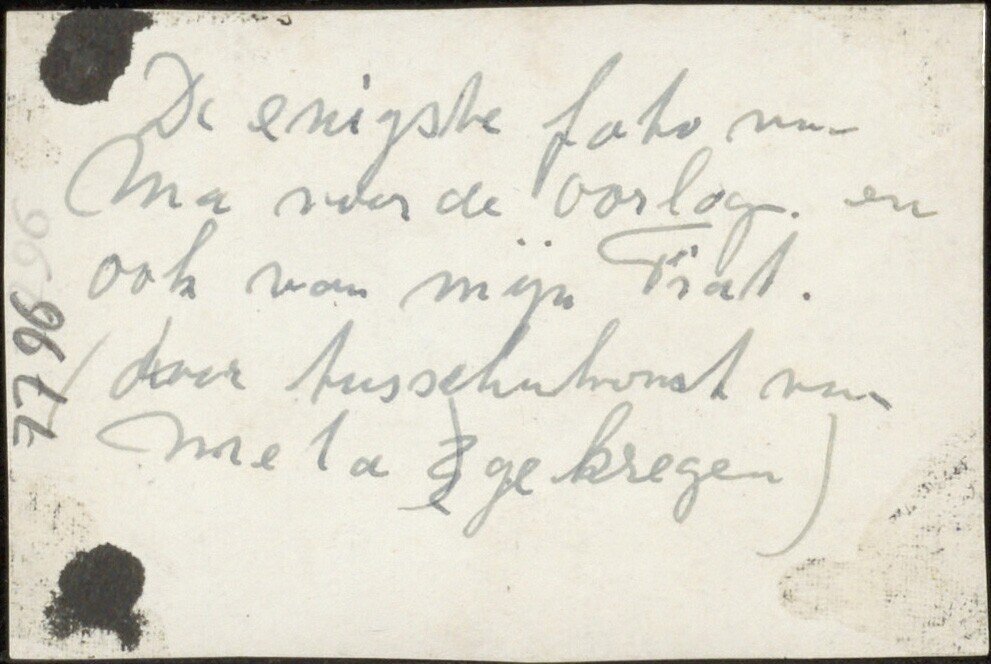 De enigste foto van
Ma voor de oorlog. en
ook van mijn Fiat.
(door tusschenkomst van
Meta) gekregen)
7796